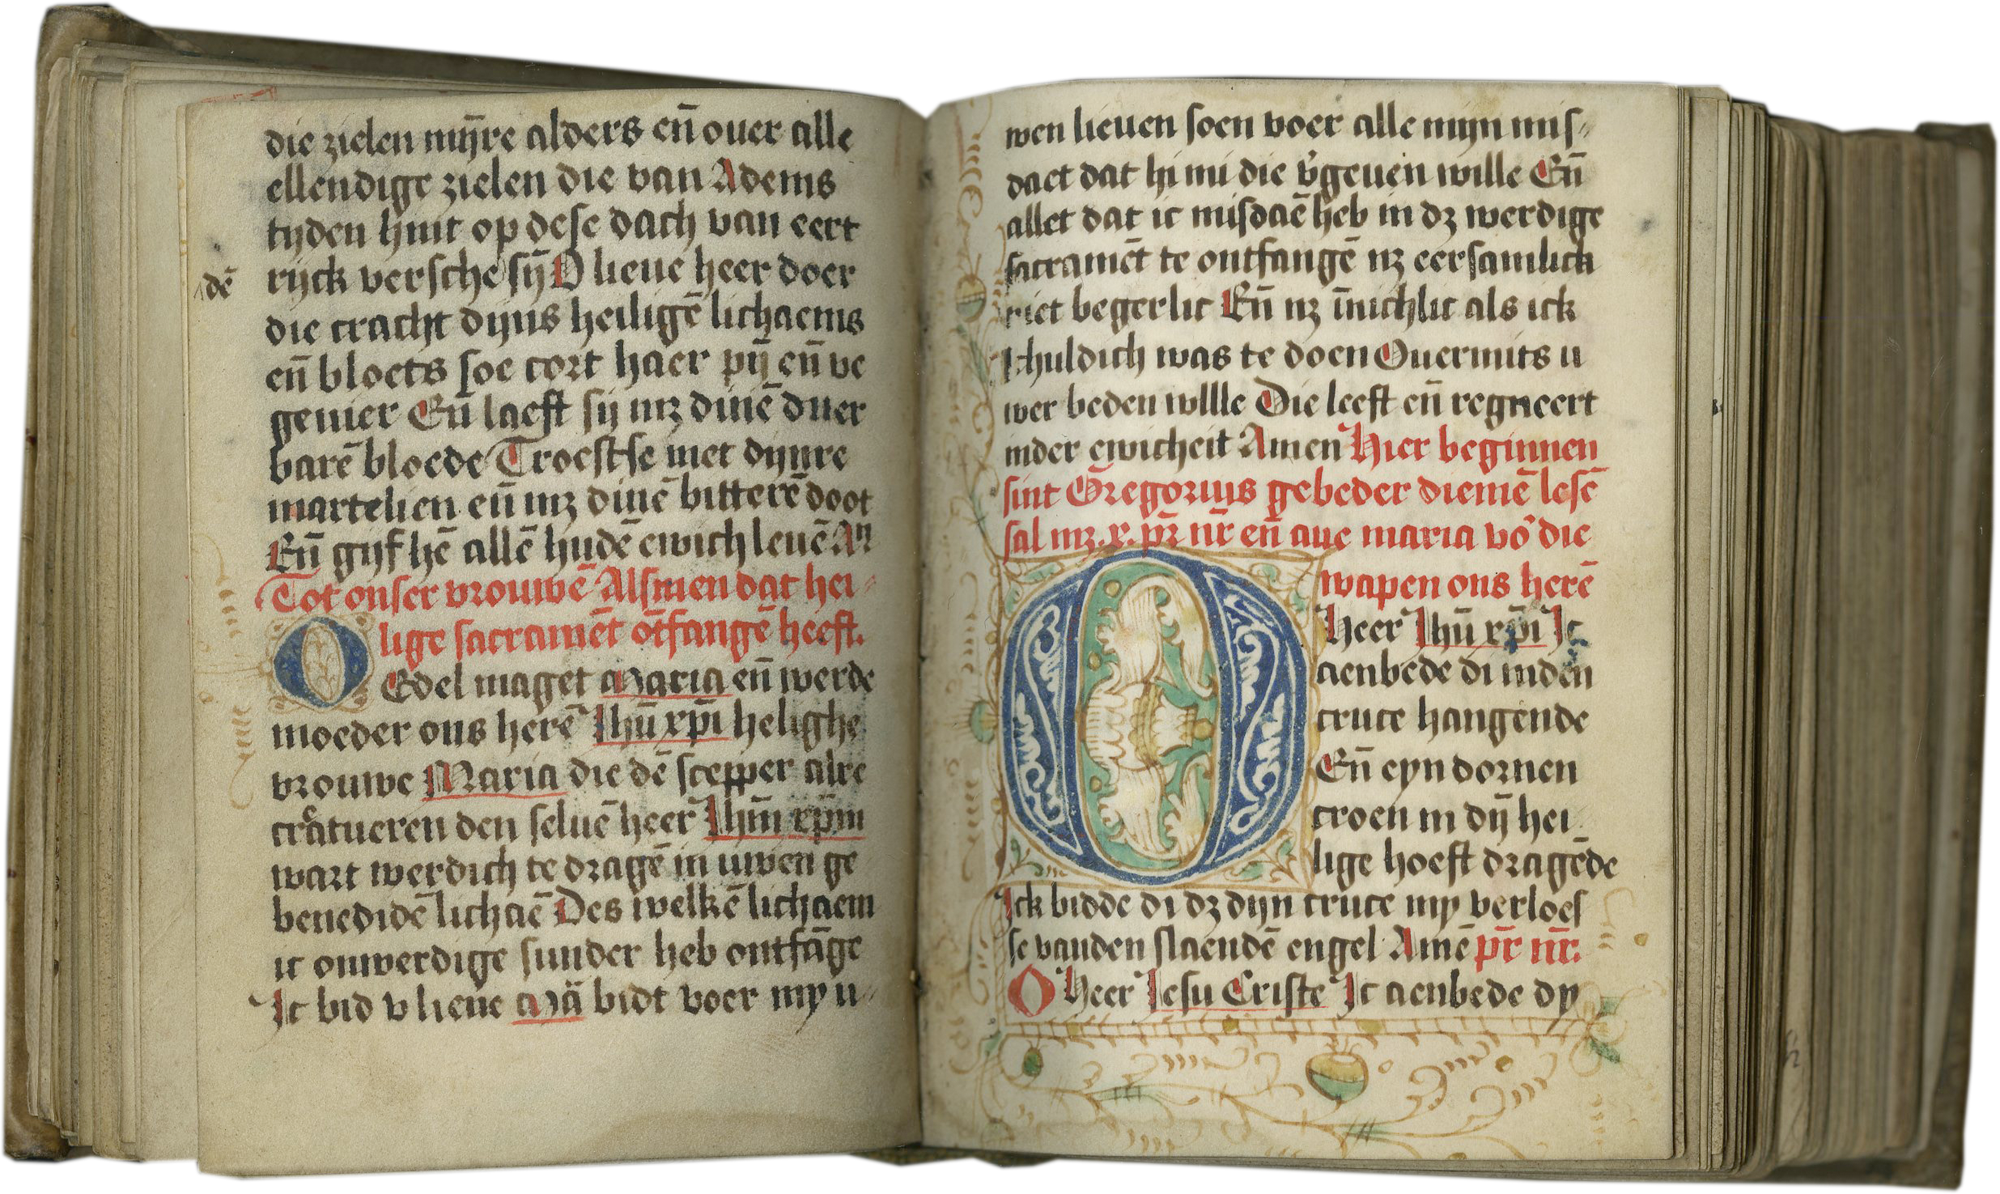 die zielen mȳre alders en̄ ouer alle
ellendige zielen die van Adems
tyden hint op dese dach van eert
dē
rijck versche sȳ O lieue heer doer
die cracht dijns heiligē lichaems
en̄ bloets soe cort haer pȳ en̄ ve
geuier En̄ laeft sij mz dinē duer
barē bloede Troestse met dijnre
martelien en̄ mz dinē bitterē doot
En̄ gijf hē allē hudē ewich leuē Am̄
Tot onser vrouwē Alsmen dat hei
lige sacramēt ōtfangē heeft.
O Edel maget Maria en̄ werde
moeder ons herē Ihū xpi̅ helighe
vrouwe Maria die dē scepper alre
creatueren den seluē heer Ihm̄ xpm̄
wart werdich te dragē in uwen ge
benedidē lichaē Des welkē lichaem
ic onwerdige sunder heb ontfāge
Ic bid v lieue Mā bidt voer my u
wen lieuen soen voer alle mijn mis
daet dat hi mi die v̄geuen wille En̄
allet dat ic misdaē heb in dz werdige
sacramēt te ontfangē nz eersamlick
niet begerlic En̄ nz īnichlic als ick
schuldich was te doen Ouermits u
wer beden wllle Die leeft en̄ regneert
inder ewicheit Amen Hier beginnen
sint Gregorius gebeder diemē lesē
sal mz .x. pr̄ nr̄ en̄ aue maria vō die
wapen ons herē
O Heer Ihū xpi̅ Ic
aenbede di inden
cruce hangende
En̄ eyn dornen
croen in dȳ hei
lige hoeft dragēde
Ick bidde di dz dijn cruce my verloes
se vanden slaendē engel Amē pr̄ nr̄.
O Heer Iesu Criste Ic aenbede dy